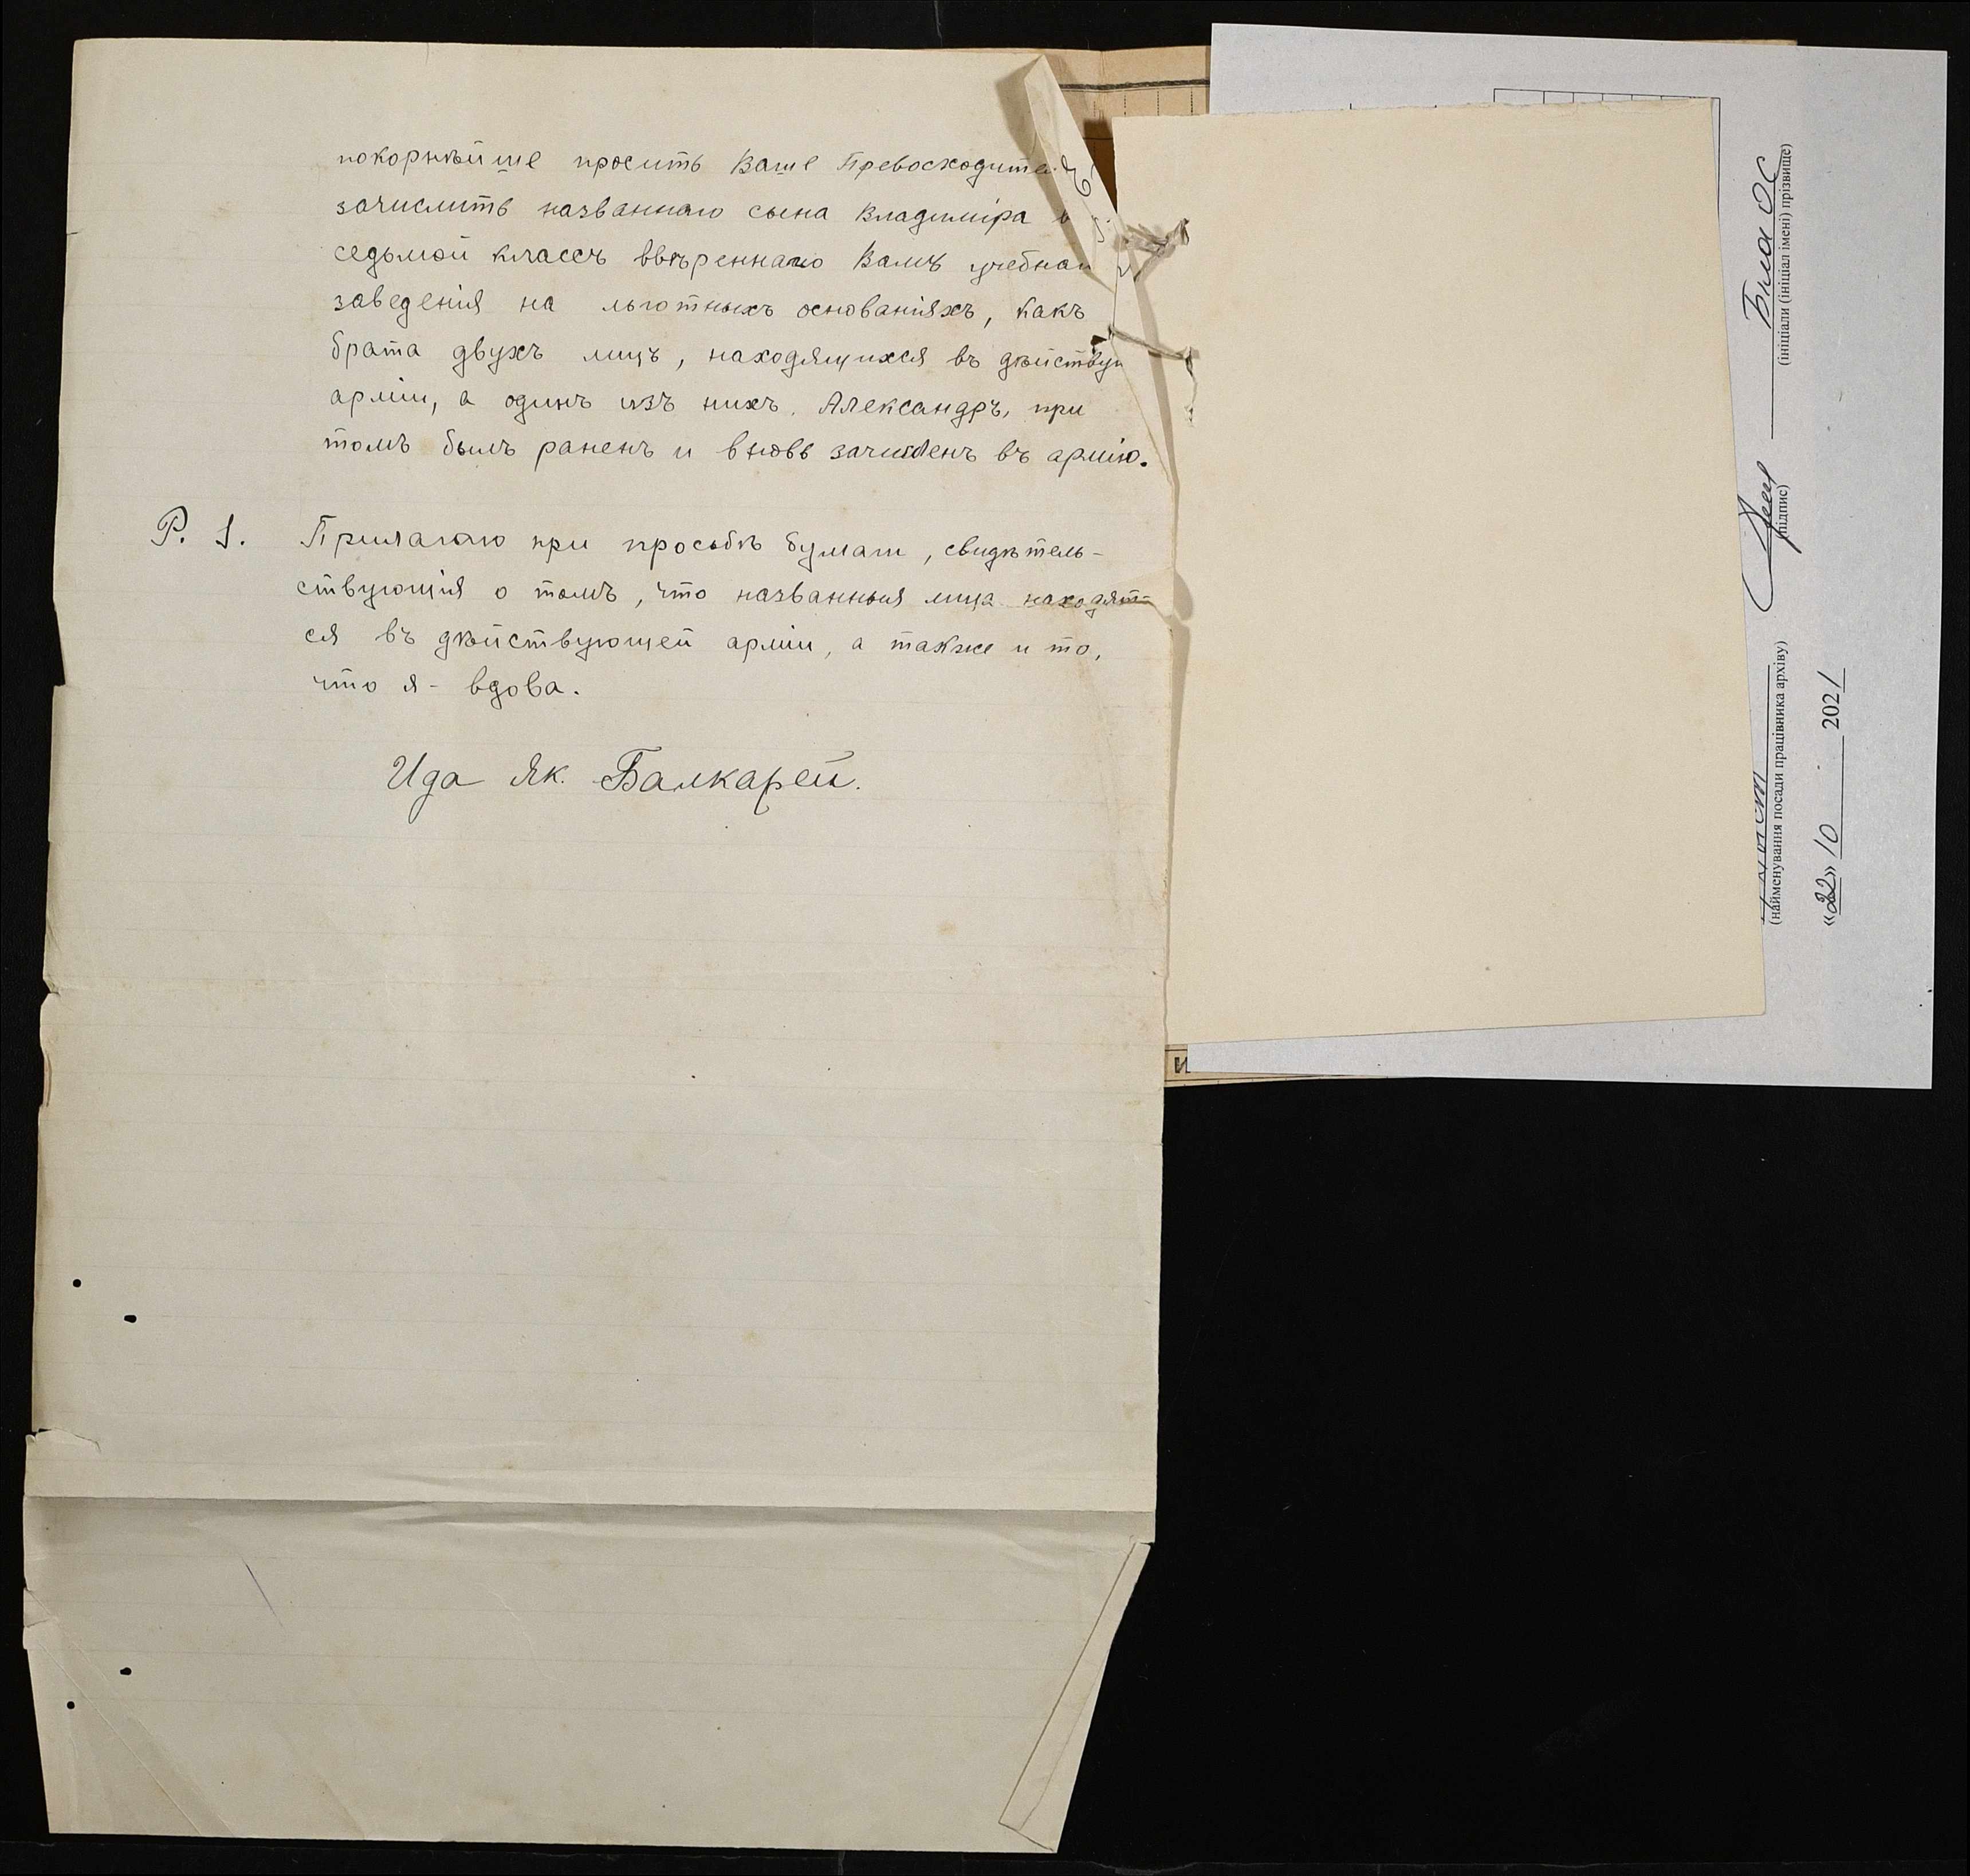 покорнѣйше просить Ваше Превосходите
зачислить названнаго сына Владиміра в
седьмой классъ ввѣреннаго Вамъ учебнаг
заведенія на льготныхъ основаніяхъ, какъ
брата двухъ лицъ, находящихся въ дѣйствую
арміи, а одинъ изъ нихъ, Александръ, при
томъ былъ раненъ и вновь зачисленъ въ армію.
P. S. Прилагаю при просьбѣ бумаги, свидѣтель-
ствующія о томъ, что названныя лица находят-
ся въ дѣйствующей арміи, а также и то,
что я - вдова.
Ида Як. Балкарей.
(ініціали (ініціал імені) прізвище)
(підпис)
(найменування посади працівника архіву)
«22» 10 2021